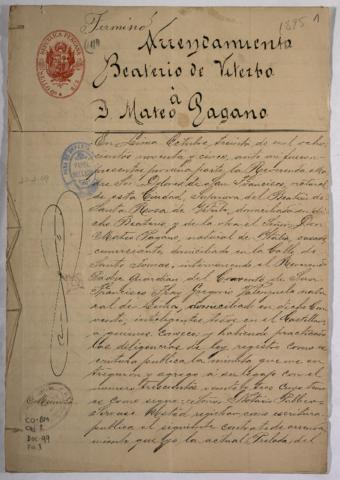 Terminó
1895 1
Arrendamiento
Beaterio de Viterbo
á
D. Mateo Pagano
En Lima Octubre, treinta de mil ocho
cientos noventa y cinco, ante mi fueron
presentes por una parte la Reverenda Ma
dre Sor Dolores de San Francisco, natural
de esta Ciudad, Superiora del Beaterio de
Santa Rosa de Viterbo, domiciliada en di
cho Beaterio y de la otra el Señor Don
Mateo Pagano, natural de Italia, casado,
comerciante, domiciliado en la Calle de
Santo Tomas, interviniendo el Reverendo
Padre Guardian del Convento de San
Francisco Fray Gregorio natu
ral de domiciliado en dicho Con
vento, inteligentes todos en el Castellano
á quienes conozco y habiendo practicado
las diligencias de ley, registro como es
critura publica la minuta que me en
tregaron y agrego á su legajo con el
numero trescientos veinte y tres cuyo tenor
es como sigue: Señor Notario Publico =
Minuta
Sirvase Usted registrar como escritura
publica el siguiente contrato de arrenda
miento que yo la actual Prelada del
REPUBLICA PERUANA
CO-BM
Doc-99
Fo. 1